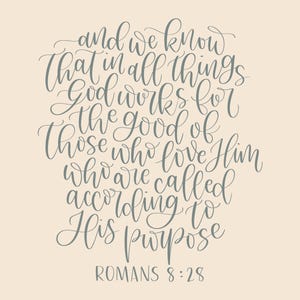 and we know
that in all things
God works for
the good of
those who love Him
who are called
according to
His purpose
ROMANS 8:28